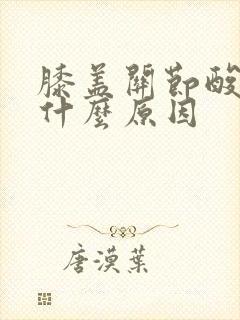 膝盖關節酸
什麼原因
唐漠葉